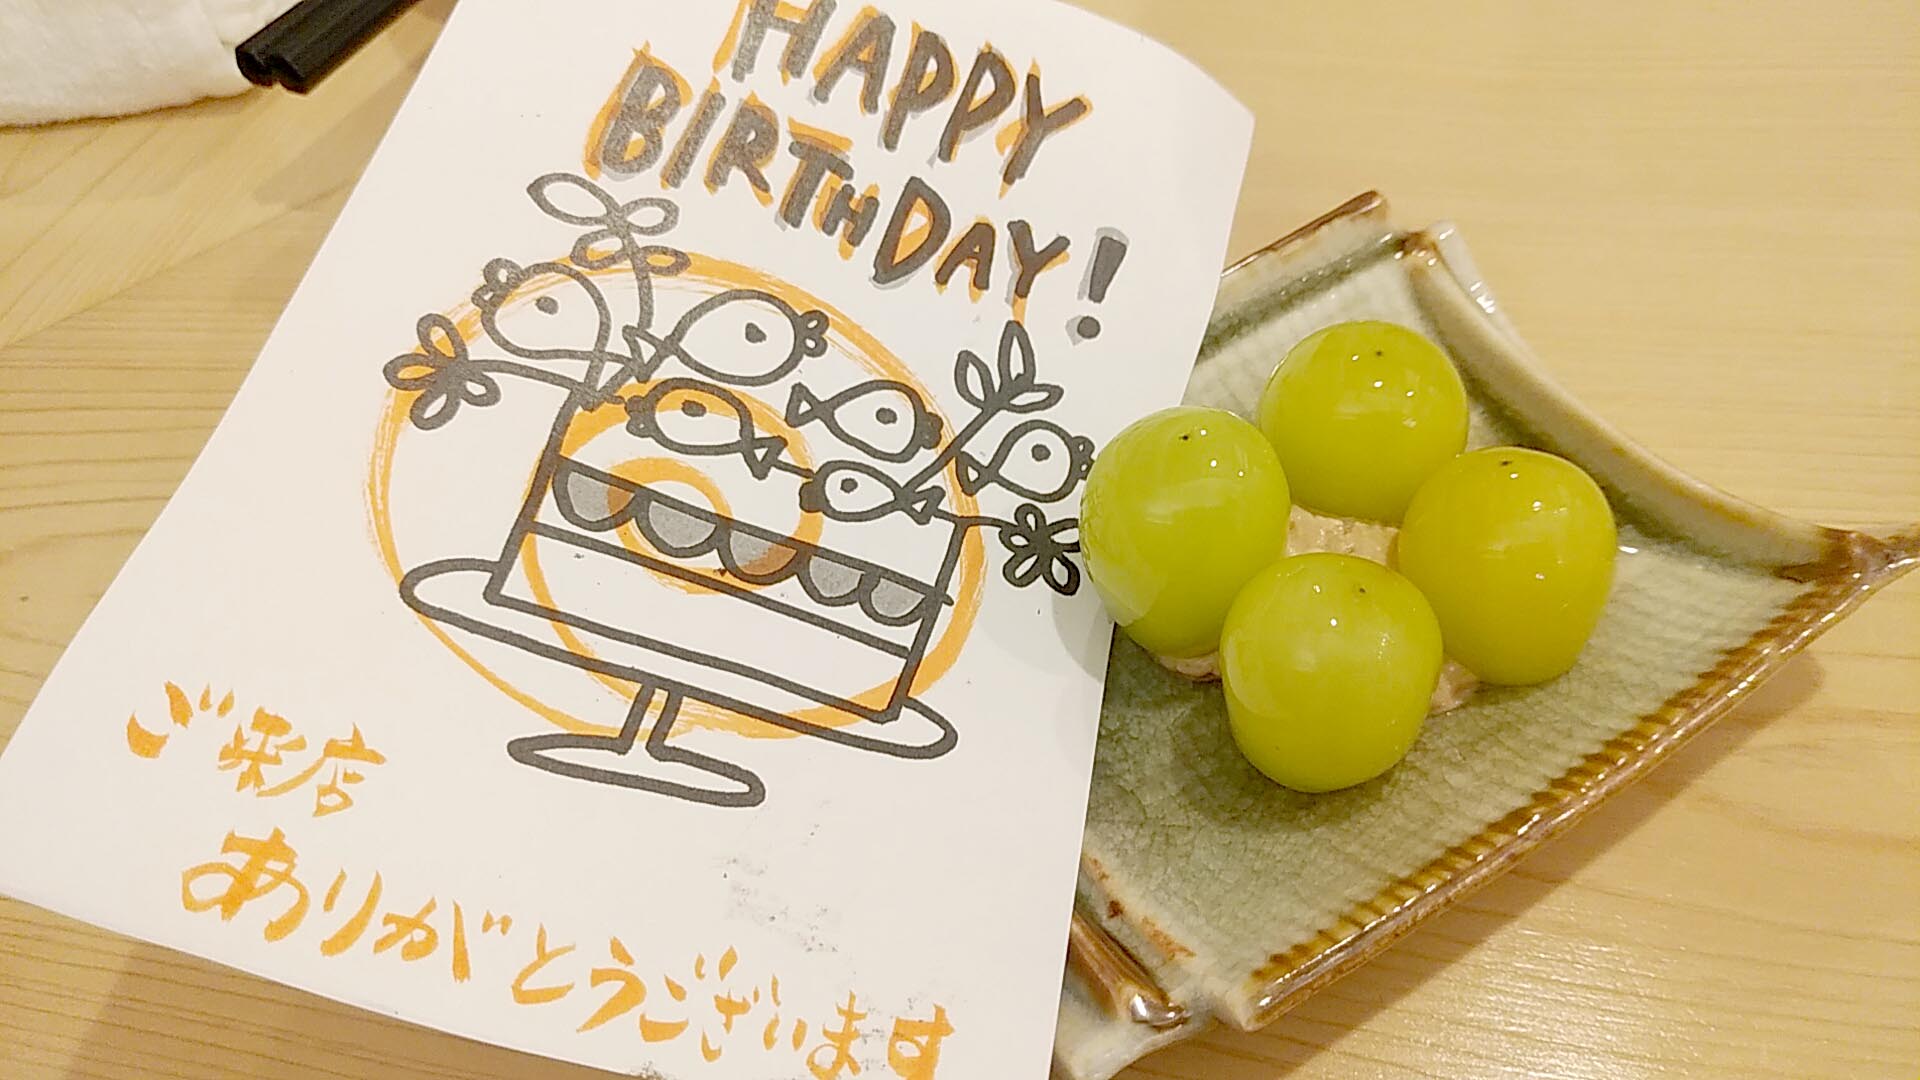 HAPPY
BIRTHDAY!
ご来店
ありがとうございます